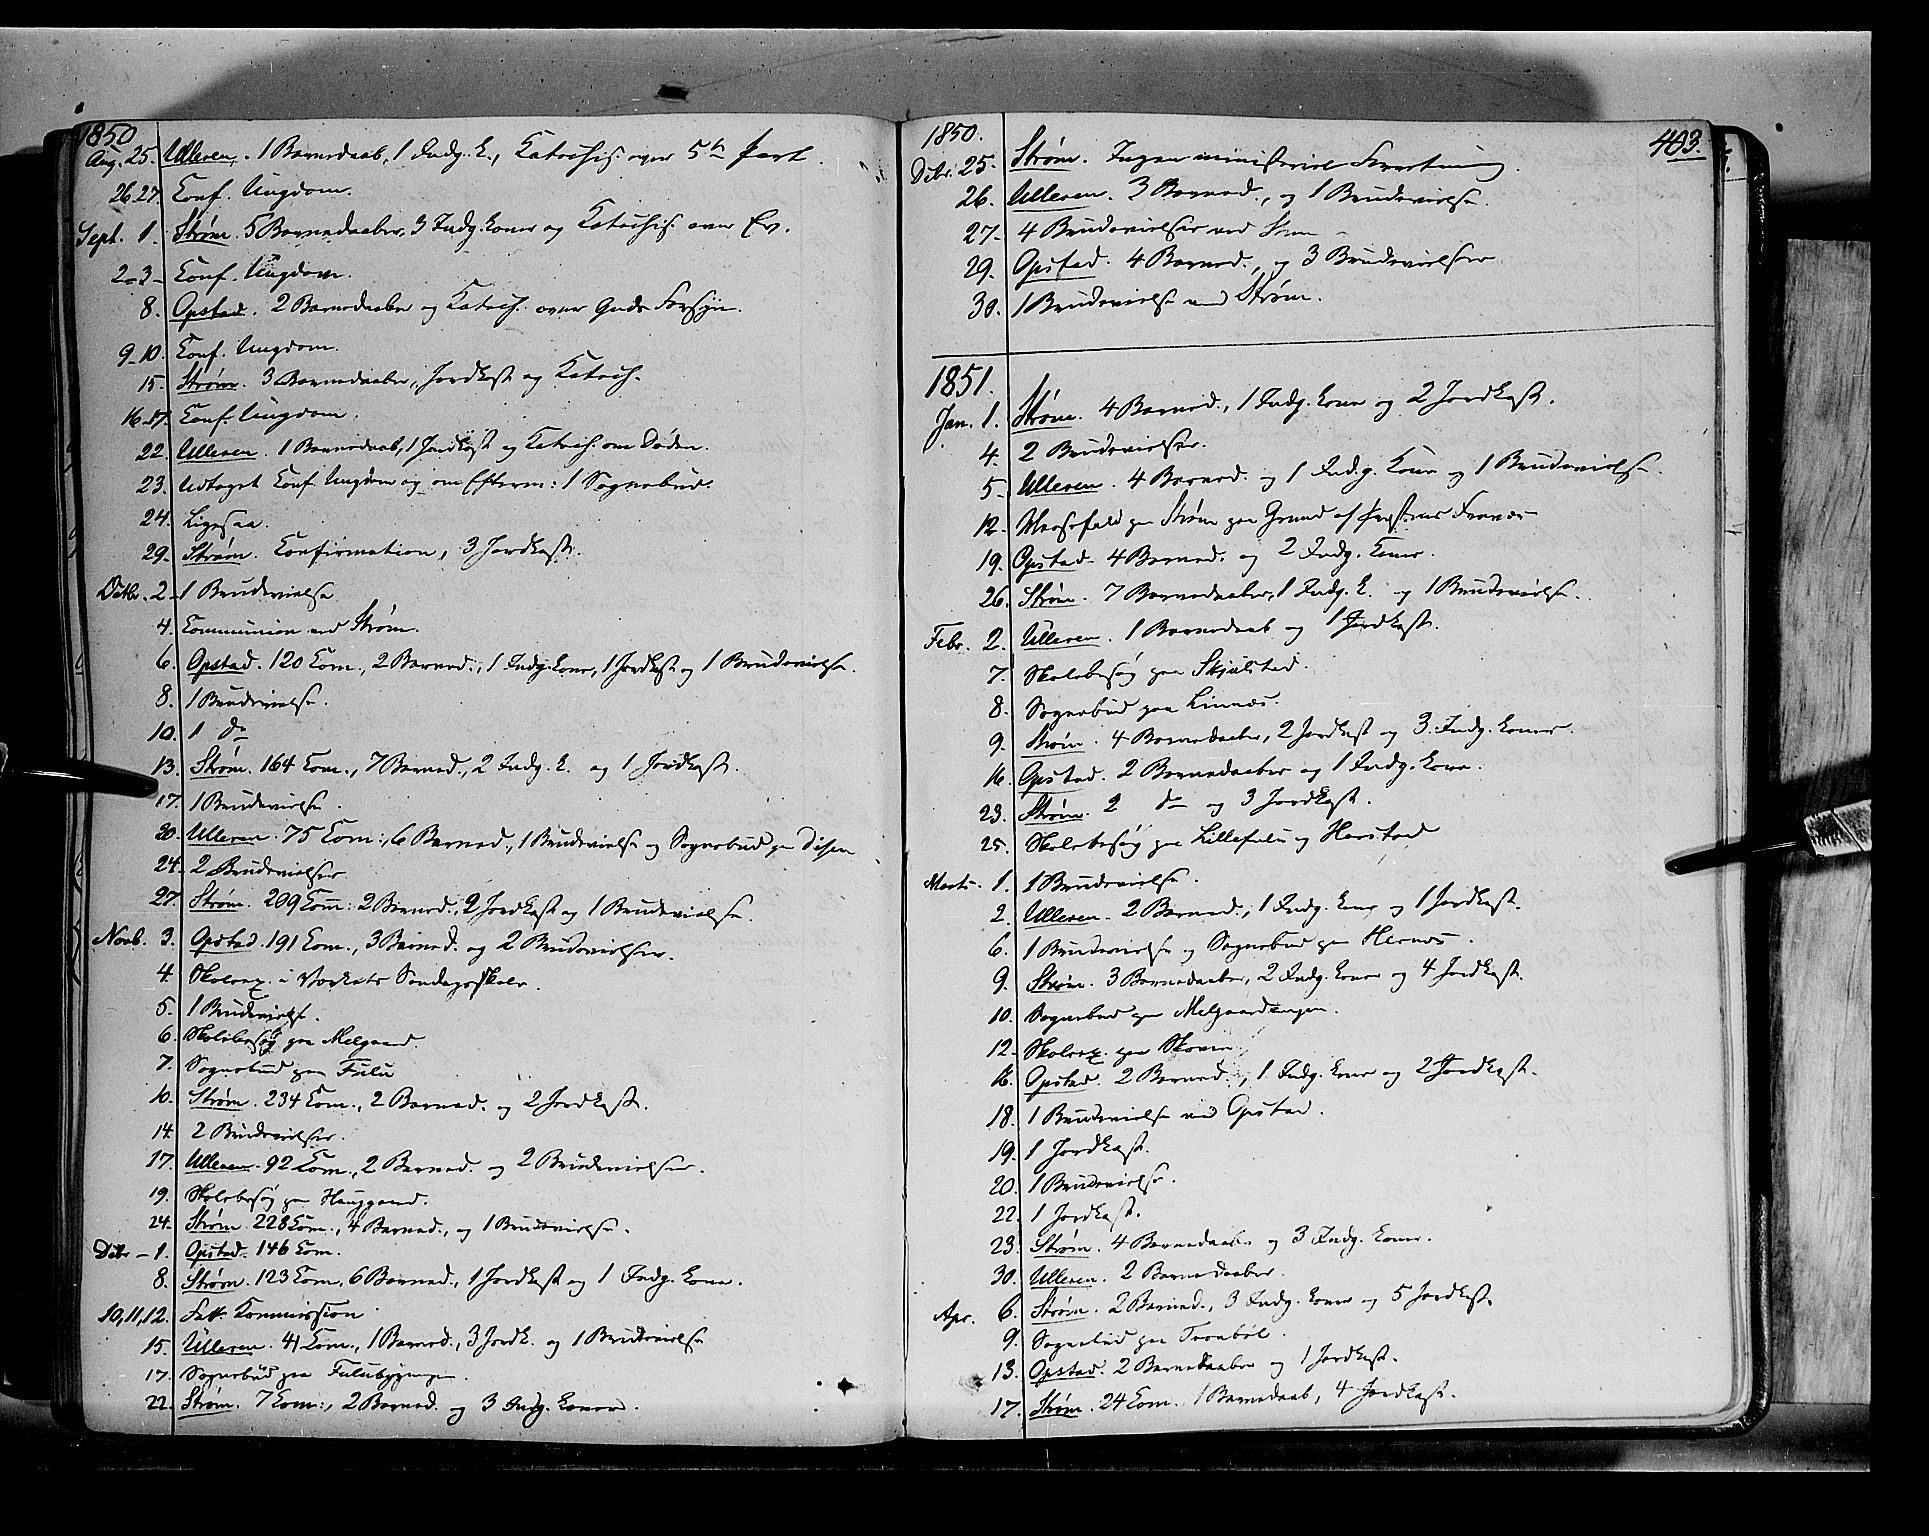 1850
Aug. 25. Ulleren. 1 Barnedaab, 1 Indg. K., Katechis. over 5te Part.
26.27. Conf. Ungdom.
Sept. 1. Strøm. 5 Barnedaaber, 3 Indg. Koner og Katechis. over Ev.
2-3- Conf. Ungdom.
8. Opstad. 2 Barnedaaber og Katech. over Guds Forsyn.
9-10. Conf. Ungdom.
15. Strøm. 3 Barnedaaber, Jordkast og Katech.
16-17. Conf. Ungdom.
22. Ulleren. 1 Barnedaab, 1 Jordkast og Katech. om Døden.
23. Udtaget Conf. Ungdom og om Efterm: 1 Sognebud.
24. Ligesaa.
29. Strøm. Confirmation, 3 Jordkast.
Octbr. 2- 1 Brudevielse
4. Communion ved Strøm.
6. Opstad. 120 Com., 2 Barned., 1 Indg. Kone, 1 Jordkast og 1 Brudevielse.
8. 1 Brudevielse.
10. 1 do
13. Strøm. 164 Com., 7 Barned., 2 Indg. K. og 1 Jordkast.
17. 1 Brudevielse.
20. Ulleren. 75 Com:, 6 Barned., 1 Brudevielse og Sognebud paa Disen
24. 2 Brudevielser
27. Strøm. 209 Com: 2 Barned., 2 Jordkast og 1 Brudevielse.
Novb. 3. Opstad. 191 Com., 3 Barned. og 2 Brudevielser.
4. Skoleex. i Søndagsskole.
5. 1 Brudevielse.
6. Skolebesøg paa Melgaard.
7. Sognebud paa Fulu
10. Strøm. 234 Com., 2 Barned. og 2 Jordkast.
14. 2 Brudevielser.
17. Ulleren. 92 Com., 2 Barned. og 2 Brudevielser.
19. Skolebesøg paa Hauggaard.
24. Strøm. 228 Com., 4 Barned., og 1 Brudevielse.
Dcbr - 1. Opstad. 146 Com.
8. Strøm. 123 Com., 6 Barned., 1 Jordkast og 1 Indg. Kone.
10,11,12. Fatt. Kommission
15. Ulleren. 41 Com., 1 Barned., 3 Jordk. og 1 Brudevielse
17. Sognebud paa Fulubygningen.
22. Strøm. 7 Com:, 2 Barned. og 3 Indg. Koner.
403.
1850.
Dcbr. 25. Strøm. Ingen ministeriel Forretning.
26. Ulleren. 3 Barned., og 1 Brudevielse.
27- 4 Brudevielser ved
29. Opstad. 4 Barned., og 3 Brudevielser
30. 1 Brudevielse ved Strøm.
1851.
Jan. 1. Strøm. 4 Barned., 1 Indg. Kone og 2 Jordkast.
4. 2 Brudevielser.
5- Ulleren. 4 Barned. og 1 Indg. Kone og 1 Brudevielse.
12. Messefald paa Strøm paa Grund af Præstens Fravær
19. Opstad. 4 Barned. og 2 Indg. Koner.
26. Strøm. 7 Barnedaaber, 1 Indg. K. og 1 Brudevielse.
Febr. 2. Ulleren. 1 Barnedaab og 1 Jordkast.
7. Skolebesøg paa Skjulstad.
8. Sognebud paa Linnæs.
9. Strøm. 4 Barnedaaber, 2 Jordkast og 3 Indg. Koner.
16. Opstad. 2 Barnedaaber og 1 Indg. Kone.
23. Strøm. 2 do og 3 Jordkast.
25. Skolebesøg paa Lillefulu og Harstad
Marts. 1. 1 Brudevielse.
2. Ulleren. 2 Barned., 1 Indg. Kone og 1 Jordkast.
6. 1 Brudevielse og Sognebud paa Hernæs.
9. Strøm. 3 Barnedaaber, 2 Indg. Koner og 4 Jordkast.
10. Sognebud paa Melgaardengen.
12. Skoleex. paa Skoven
16. Opstad. 2 Barned., 1 Indg. Kone og 2 Jordkast.
18. 1 Brudevielse ved Opstad.
19. 1 Jordkast.
20. 1 Brudevielse.
22. 1 Jordkast.
23. Strøm. 4 Barnedaaber og 3 Indg. Koner.
30. Ulleren. 2 Barnedaaber.
Apr. 6. Strøm. 2 Barned., 3 Indg. Koner og 5 Jordkast.
9. Sognebud paa Tronbøl.
13. Opstad. 2 Barnedaaber og 1 Jordkast.
17. Strøm. 24 Com. 1 Barnedaab, 4 Jordkast.